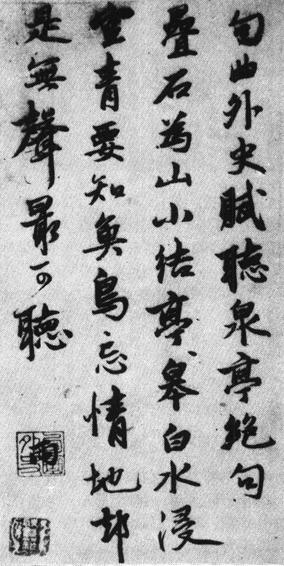 句曲外史賦聽泉亭絶句
疊石為山小結亭〻皋白水浸
空青要知魚鳥忘情地却
是無聲最可聽